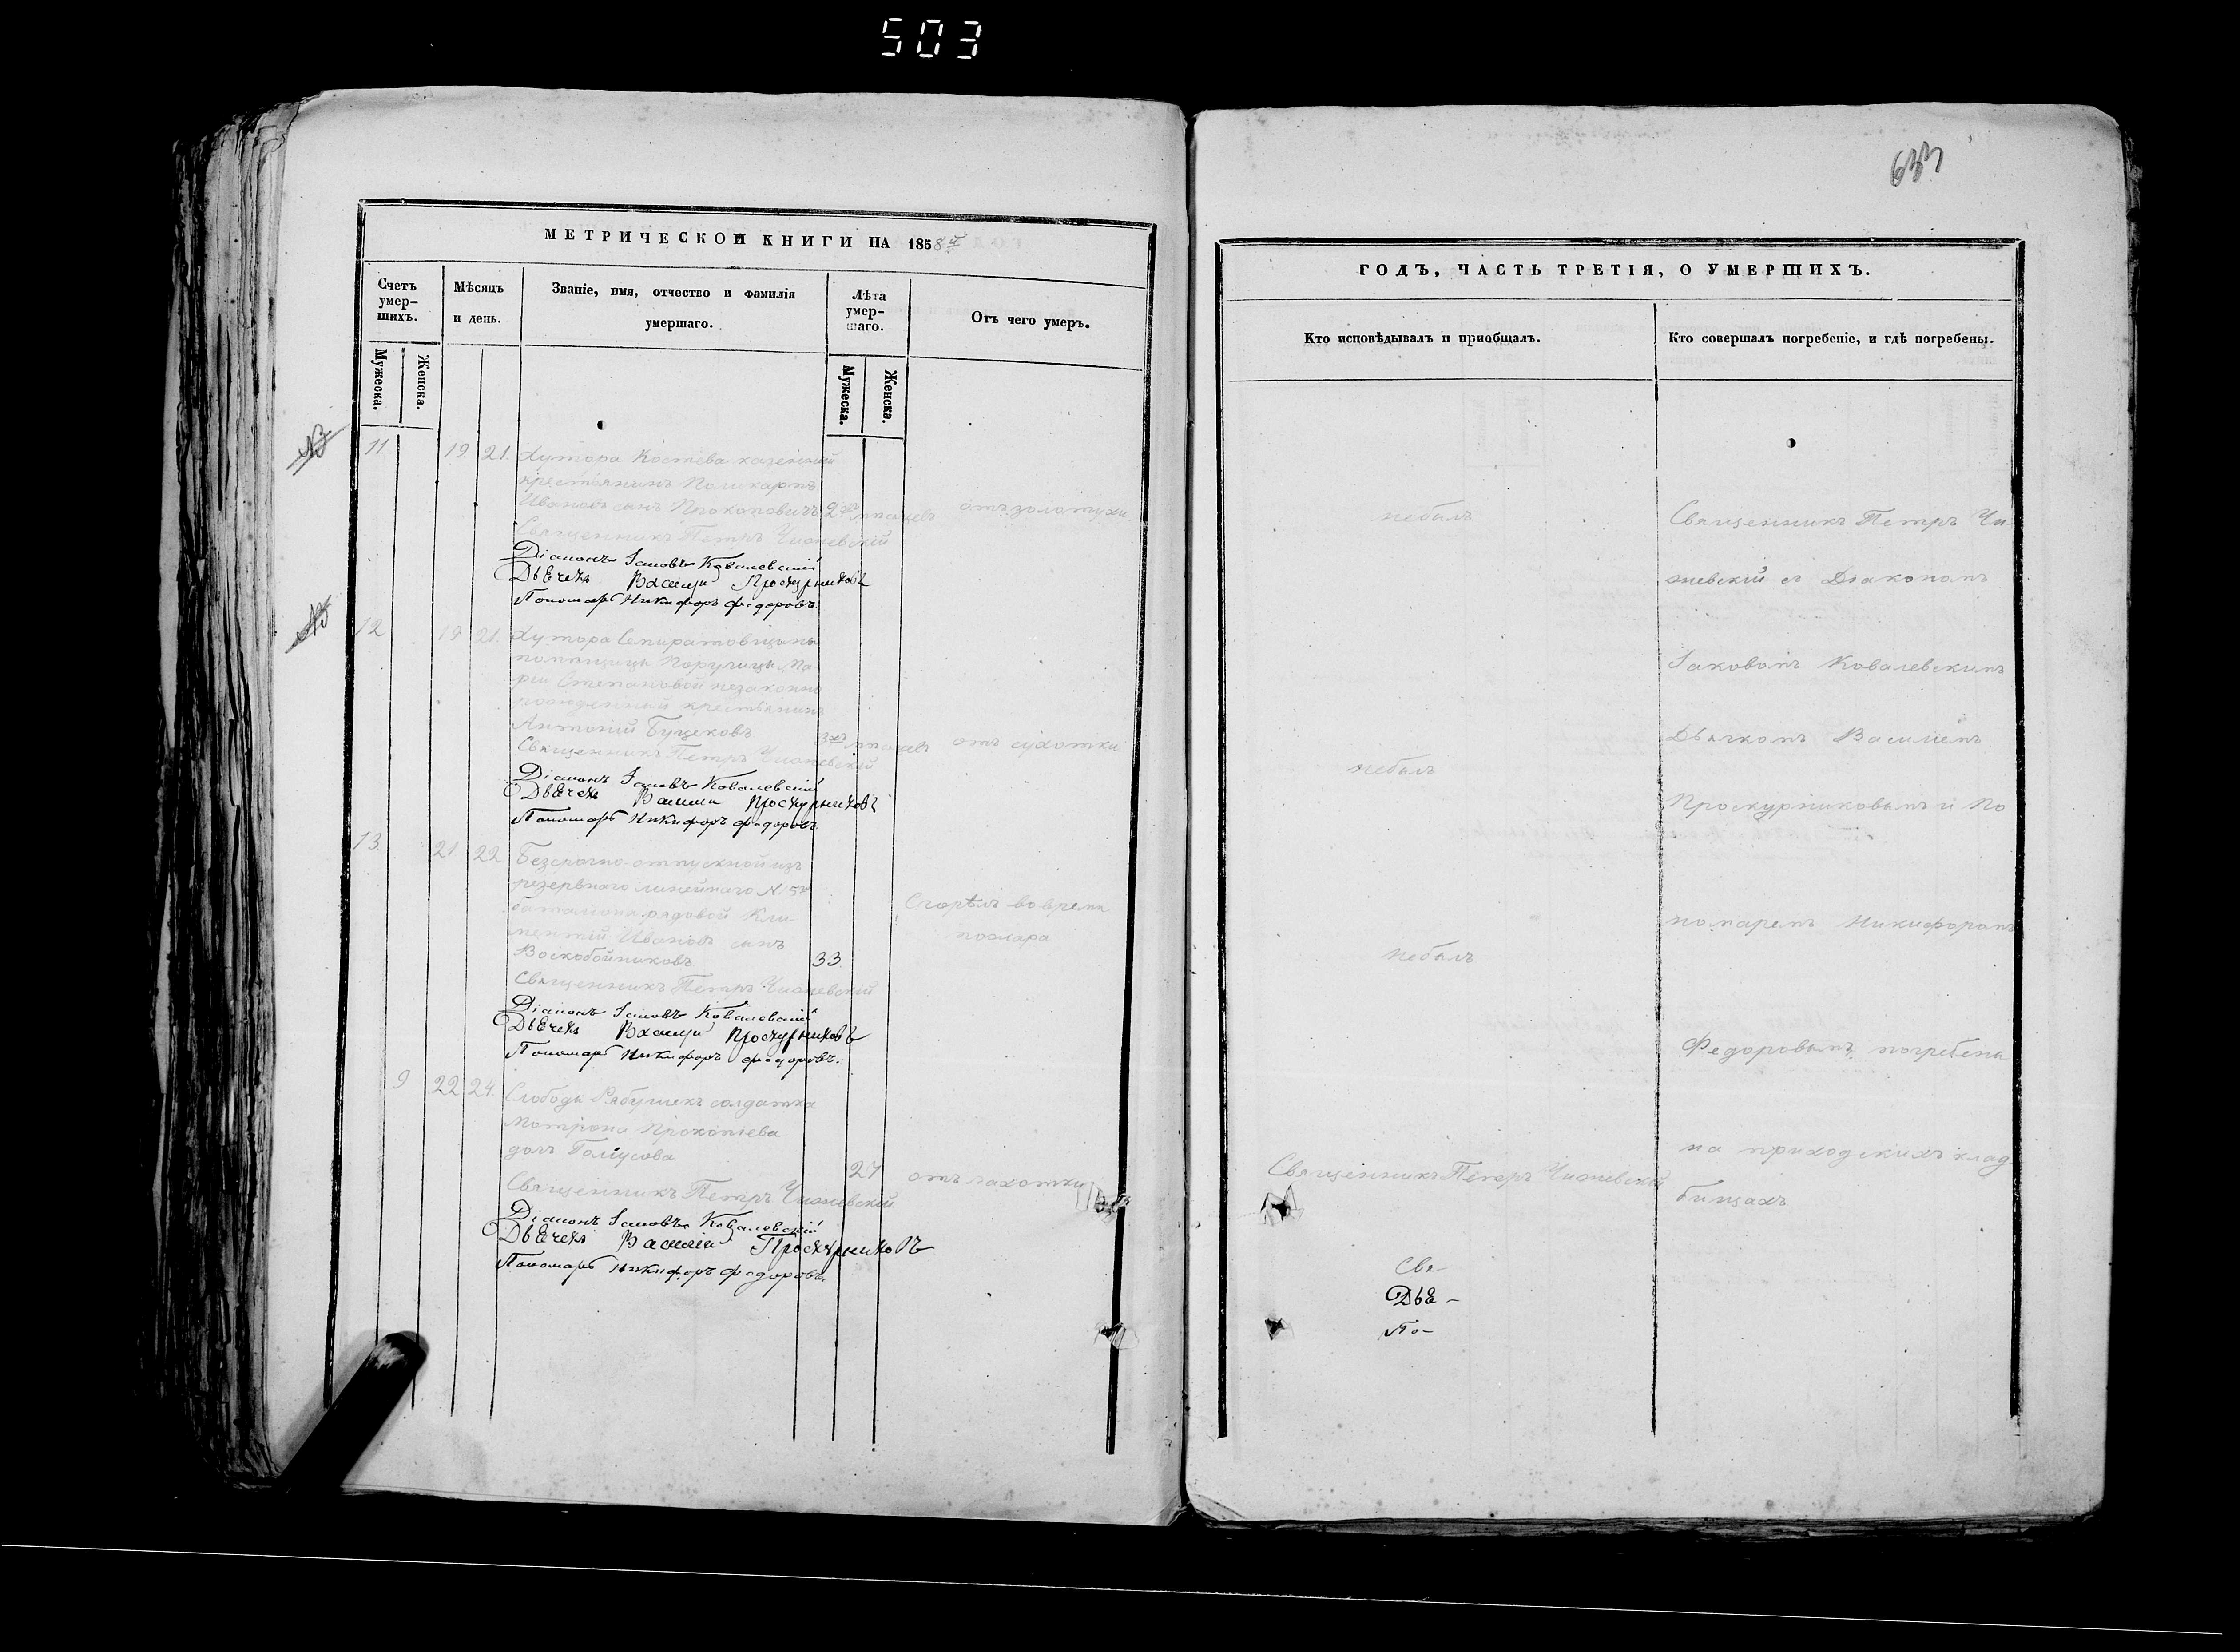 503
633
МЕТРИЧЕСКОЙ КНИГИ НА 1858й
Счетъ умер-
шихъ.
Мѣсяцъ
и день.
Званіе, имя, отчество и фамилія
умершаго.
Лѣта
умер-
шаго.
Отъ чего умеръ.
Мужеска.
Женска.
Мужеска.
Женска.
11. 19. 21. Хутора Костева казенный
крестьянинъ Поликарпъ
Ивановъ сынъ Прокоповичъ 2хъ отъ золотухи
Священникъ Петръ Чижевскій
Діаконъ Іаковъ Ковалевскій
Дьячекъ Василій Проскурниковъ
Пономарь Никифоръ Федоровъ.
12 19 21. Хутора
Степановой незаконно
рожденный крестьянинъ
Антоній
3хъ отъ сухотки
Священникъ Петръ Чижевскій
Діаконъ Іаковъ Ковалевскій
Дьячекъ Василій Проскурниковъ
Пономарь Никифоръ Федоровъ.
13. 21. 22 Безсрочно-отпускной изъ
резервнаго линейнаго №5го
баталіона рядовой Кли-
ментій Ивановъ сынъ
Воскобойниковъ 33
Сгорѣлъ во время
пожара
Священникъ Петръ Чижевскій
Діаконъ Іаковъ Ковалевскій
Дьячекъ Василій Проскурниковъ
Пономарь Никифоръ Федоровъ.
9 22 24. Слободы Рябушекъ солдатка
Мотрона Прокопіева
дочь 27 отъ чахотки
Священникъ Петръ Чижевскій
Діаконъ Іаковъ Ковалевскій
Дьячекъ Василій Проскурниковъ
Пономарь Никифоръ Федоровъ.
ГОДЪ, ЧАСТЬ ТРЕТІЯ, О УМЕРШИХЪ.
Кто исповѣдывалъ и пріобщалъ.
Кто совершалъ погребеніе, и гдѣ погребены.
небылъ
небылъ
небылъ
Священникъ Петръ Чижевскій
Свя-
Дья-
По-
Священникъ Петръ Чи-
жевскій съ Діакономъ
Іаковомъ Ковалевскимъ
Дьячкомъ Василіемъ
Проскурниковымъ и По
номаремъ Никифоромъ
Федоровымъ погребены
на приходскихъ клад
бищахъ